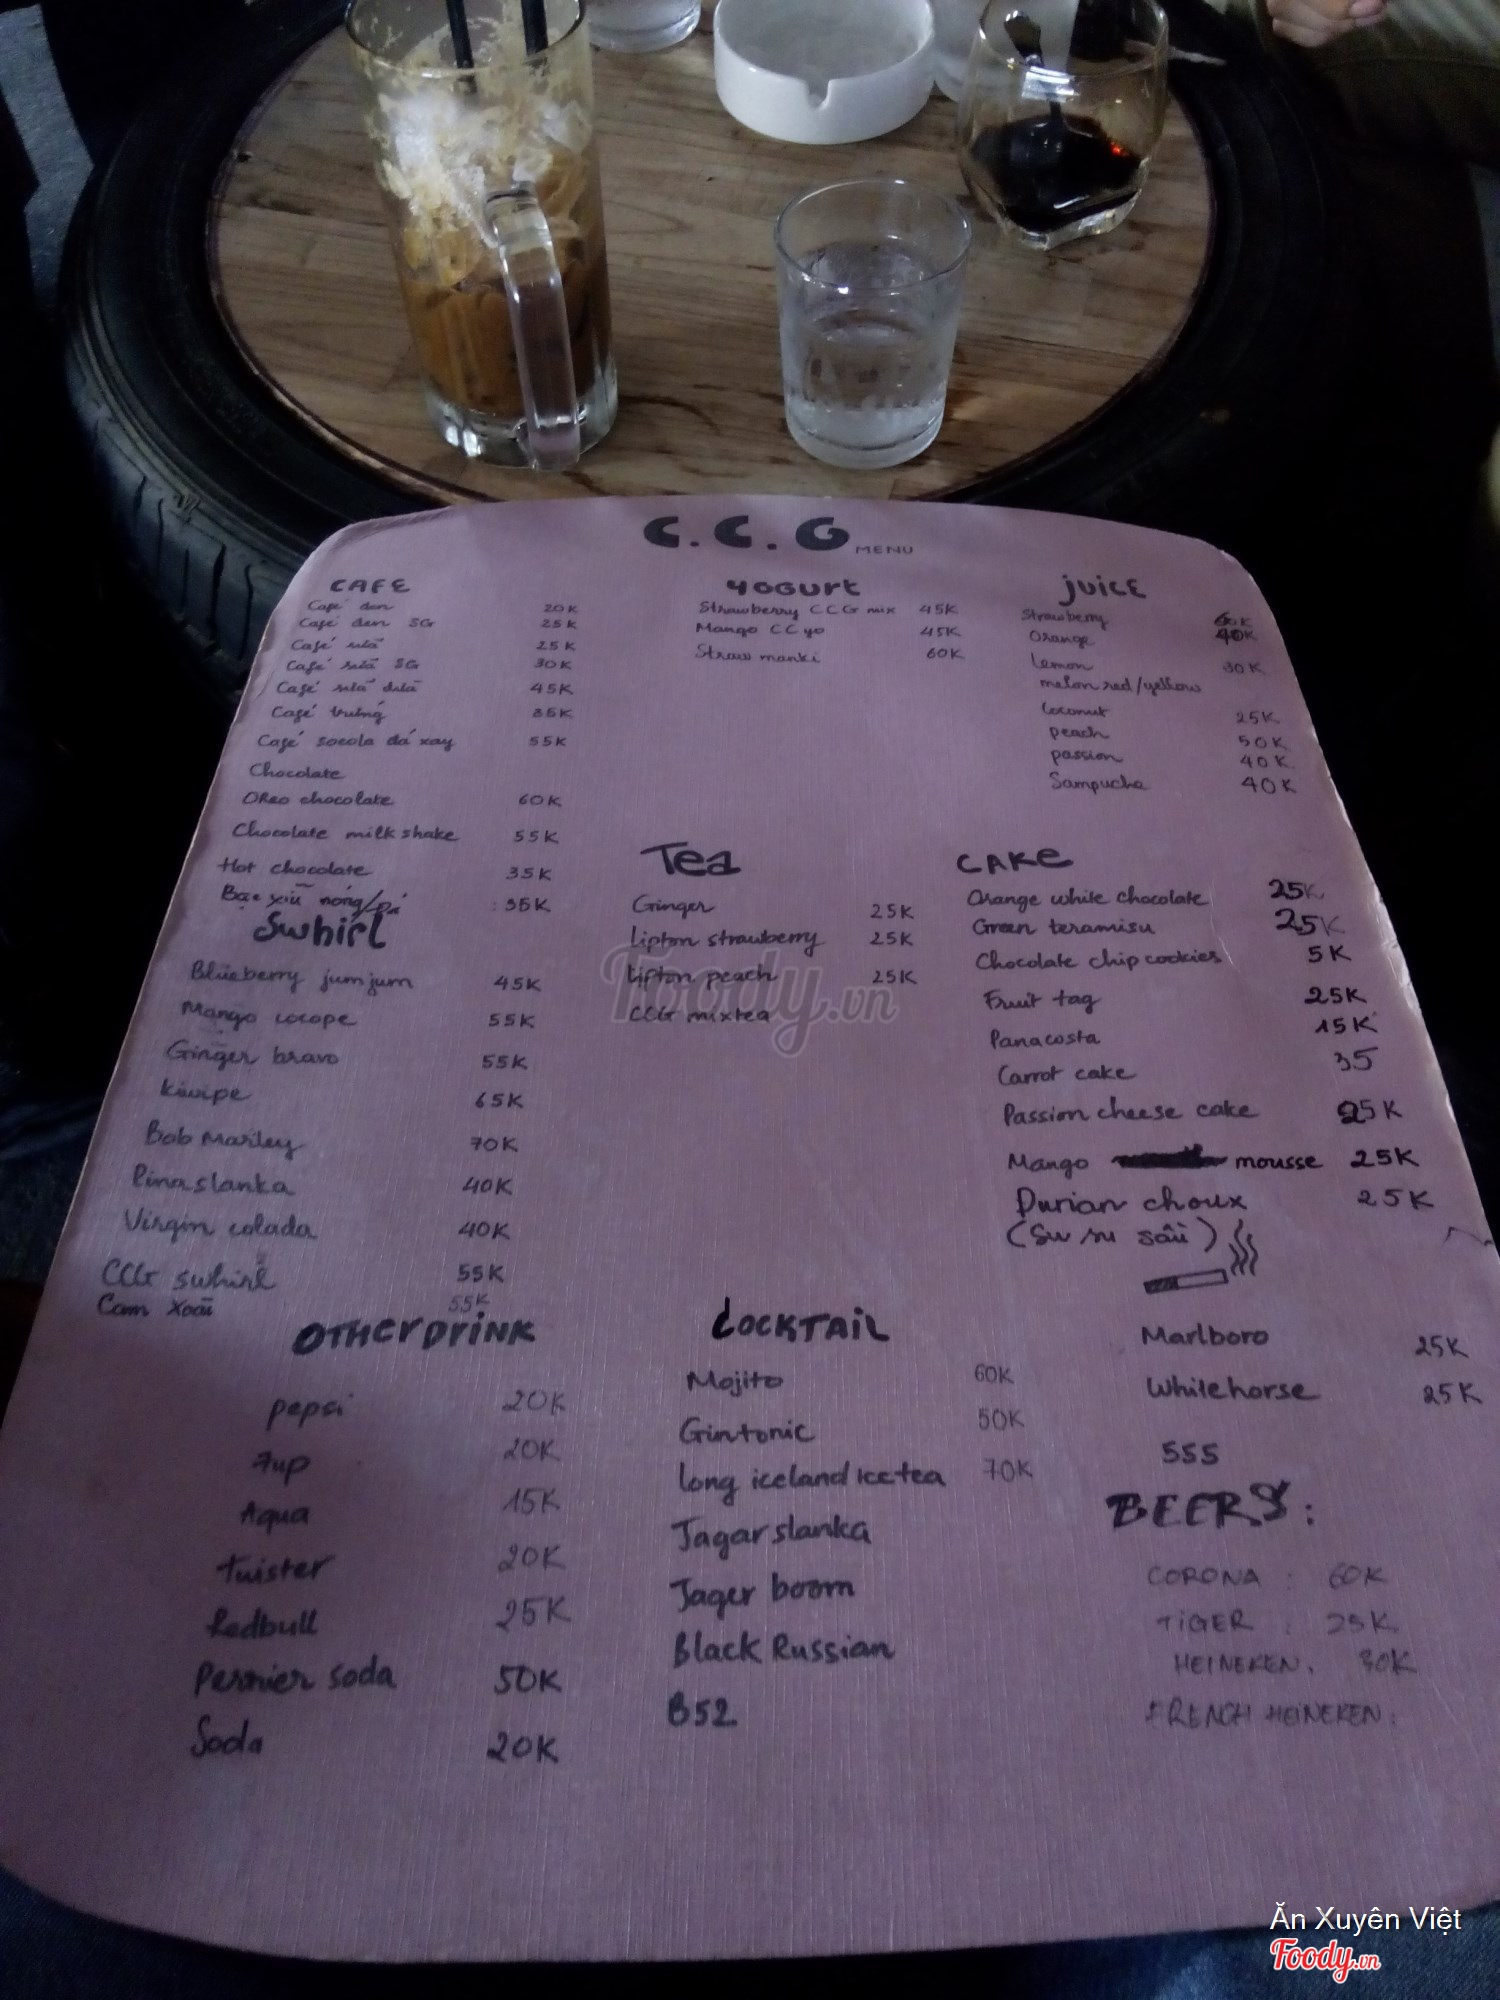 C.C.G MENU
CAFE
Café đen 20K
Café đen SG 25K
Café sữa 25K
Café sữa SG 30K
Café sữa dừa 45K
Café trứng 35K
Café socola đá xay 55K
Chocolate
Oreo chocolate 60K
Chocolate milkshake 55K
Hot chocolate 35K
Bạc xỉu nóng/đá 35K
Yogurt
Strawberry CCG mix 45K
Mango CC yo 45K
Straw manki 60K
juice
Strawberry 60K
Orange 40K
Lemon 30K
melon red/yellow
Coconut 25K
peach 50K
passion 40K
Sampucha 40K
Swhirl
Blueberry jumjum 45K
Mango cocope 55K
Ginger bravo 55K
kiwipe 65K
Bob Marley 70K
Pinaslanka 40K
Virgin colada 40K
CCG swhirl 55K
Cam Xoài 55K
Tea
Ginger 25K
lipton strawberry 25K
lipton peach 25K
CCG mixtea
CAKe
Orange white chocolate 25K
Green teramisu 25K
Chocolate chip cookies 5K
Fruit tag 25K
Panacosta 15K
Carrot cake 35
Passion cheese cake 25K
Mango mousse 25K
Durian choux 25K
(Su su sầu)
OTHer DrINK
pepsi 20K
7up 20K
Aqua 15K
twister 20K
Redbull 25K
Perrier soda 50K
Soda 20K
COCKTAIL
Mojito 60K
Gintonic 50K
long iceland icetea 70K
Jagarslanka
Jager boom
Black Russian
B52
Marlboro 25K
Whitehorse 25K
555
BEERS:
CORONA : 60K
TIGER : 25K
HEINEKEN. 30K
FRENCH HEINEKEN.
Foody.vn
Ăn Xuyên Việt
Foody.vn